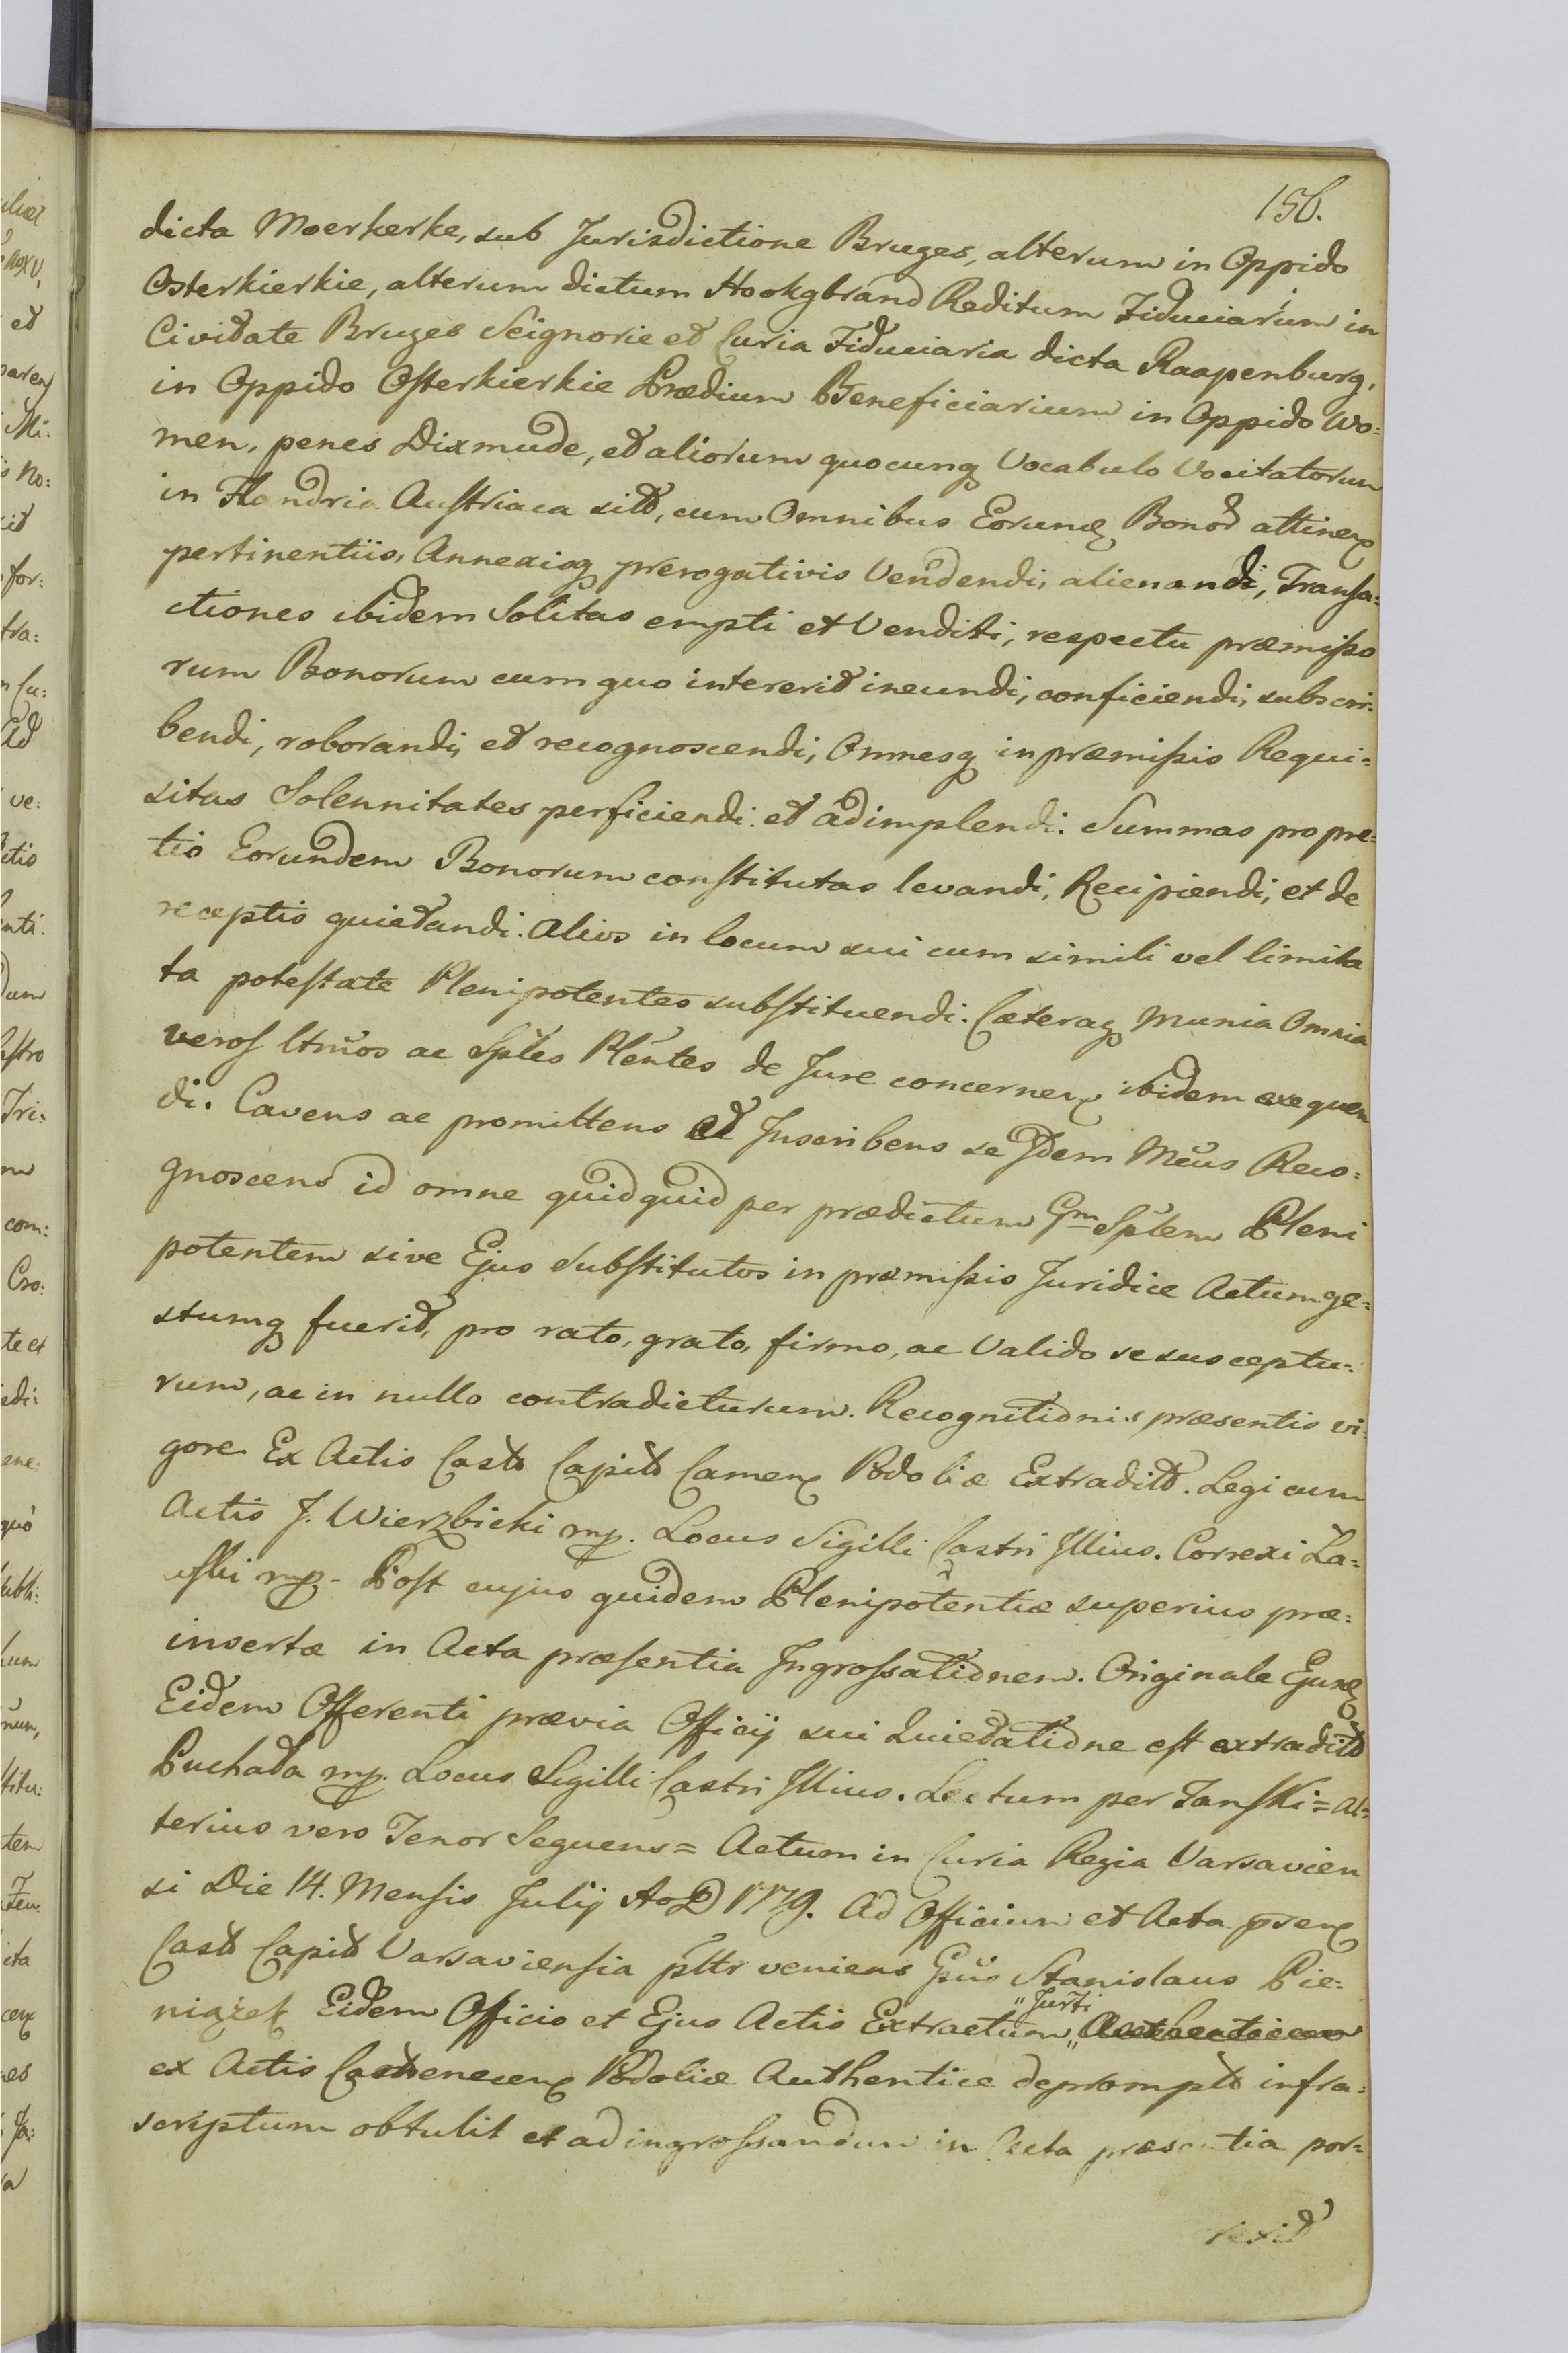 156.
dicta Moerkerke, sub Jurisdictione Bruges, alterum in Oppido
Osterkierkie, alterum dictum Hookgbrand Reditum Fiduciarium in
Civitate Bruges Seignorie et Curia Fiduciaria dicta Raapenburg,
in Oppido Osterkierkie Prædium Beneficiarium in Oppido Wo=
men, penes Dixmude, et aliorum quocunq Vocabulo Vocitatorum
in Flandria Austriaca sit, cum Omnibus Eorumq Bonor attinen
pertinentiis, Annexisq prerogativis Vendendi, alienandi, Transa=
ctiones ibidem Solitas empti et Venditi, respectu præmisso
rum Bonorum cum quo intererit ineundi, conficiendi, subscri=
bendi, roborandi, et recognoscendi, Omnesq in præmissis Requi=
sitas Solennitates perficiendi et adimplendi. Summas pro pre=
tio Eorundem Bonorum constitutas levandi, Recipiendi, et de
receptis quietandi. Alios in locum sui cum simili vel limita
ta potestate Plenipotentes substituendi. Cæteraq Munia Omnia
veros ltmos ac Sples Plentes de Jure concernen ibidem exequen
di. Cavens ac promittens et Inscribens se Idem Mcus Reco=
gnoscens id omne quidquid per prædictum Gm Splem Pleni
potentem sive Ejus Substitutos in præmissis Juridice Actum ge=
stumq fuerit, pro rato, grato, firmo, ac Valido se susceptu=
rum, ac in nullo contradicturum. Recognitionis præsentis vi=
gore. Ex Actis Cast Capit Camen Podoliæ Extradit. Legi cum
Actis J. Wierzbicki mp. Locus Sigilli Castri Illius. Correxi La=
ski mp - Post cujus quidem Plenipotentiæ superius præ=
insertæ in Acta præsentia Ingrossationem. Originale Ejusq
Eidem Offerenti prævia Officij sui Quietatione est extradit
Puchała mp. Locus Sigilli Castri Illius. Lectum per Janski = Al=
terius vero Tenor Sequens = Actum in Curia Regia Varsavien
si Die 14. Mensis Julij AoD 1779. Ad Officium et Acta psen
Cast Capit Varsaviensia pltr veniens Gnus Stanislaus Pie=
niążek Eidem Officio et Ejus Actis Extractum „ Authenticum
„ Jurti
ex Actis Castrenecen Podoliæ Authentice deprompt infra=
scriptum obtulit et ad ingrossandum in Acta præsentia por=
rexit